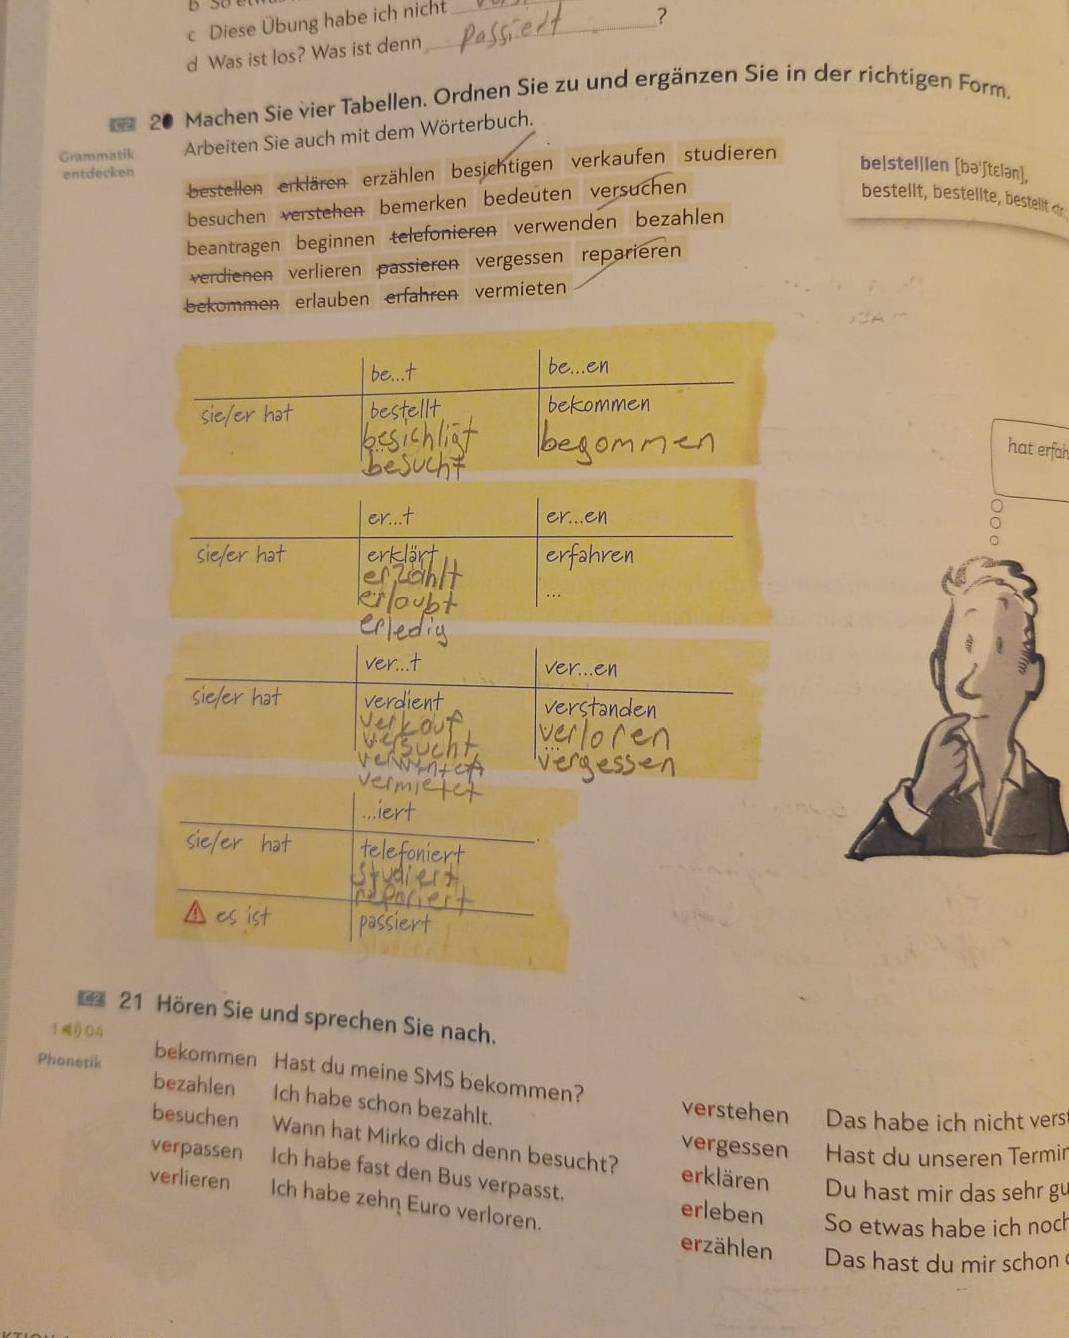 c Diese Übung habe ich nicht
d Was ist los? Was ist denn passiert ?
C2 20 Machen Sie vier Tabellen. Ordnen Sie zu und ergänzen Sie in der richtigen Form.
Arbeiten Sie auch mit dem Wörterbuch.
Grammatik
entdecken
bestellen erklären erzählen besichtigen verkaufen studieren
besuchen verstehen bemerken bedeuten versuchen
beantragen beginnen telefonieren verwenden bezahlen
verdienen verlieren passieren vergessen reparieren
bekommen erlauben erfahren vermieten
be|stel|len [bəˈʃtɛlən],
bestellt, bestellte, bestellt
be...t be...en
sie/er hat bestellt bekommen
besichligt begommen
besucht
hat erfah
er...t er...en
sie/er hat erklärt erfahren
erzählt ...
erloubt
erledig
ver...t ver...en
sie/er hat verdient verstanden
verkouf verloren
versucht vergessen
vermietet
...iert
sie/er hat telefoniert
studiert
repariert
es ist passiert
C2 21 Hören Sie und sprechen Sie nach.
1 04
Phonetik
bekommen Hast du meine SMS bekommen?
bezahlen Ich habe schon bezahlt.
besuchen Wann hat Mirko dich denn besucht?
verpassen Ich habe fast den Bus verpasst.
verlieren Ich habe zehn Euro verloren.
verstehen Das habe ich nicht verst
vergessen Hast du unseren Termin
erklären Du hast mir das sehr gu
erleben So etwas habe ich noch
erzählen Das hast du mir schon